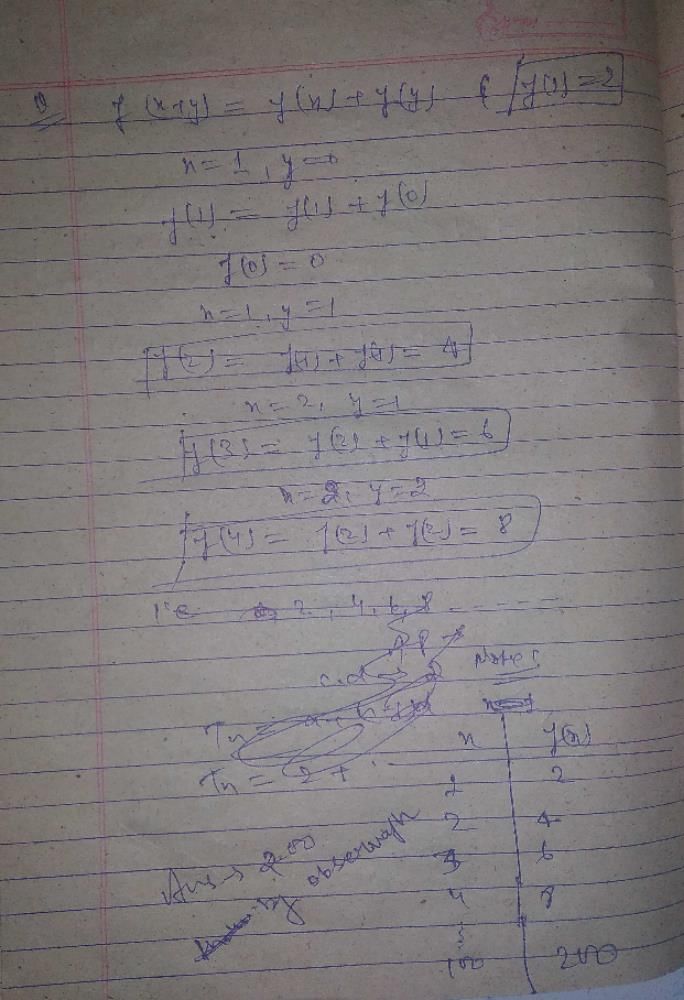 Q f(x+y) = f(x) + f(y) & f(1) = 2
x=1, y=0
f(1) = f(1) + f(0)
f(0) = 0
x=1, y=1
f(2) = f(1) + f(1) = 4
x=2, y=1
f(3) = f(2) + f(1) = 6
x=2, y=2
f(4) = f(2) + f(2) = 8
i.e 2, 4, 6, 8 -------
AP
c.d → 2
Notes
Tn = a+(n-1)d
x f(x)
Tn = 2 +
1 2
2 4
3 6
4 8
100 200
Ans → 200
by